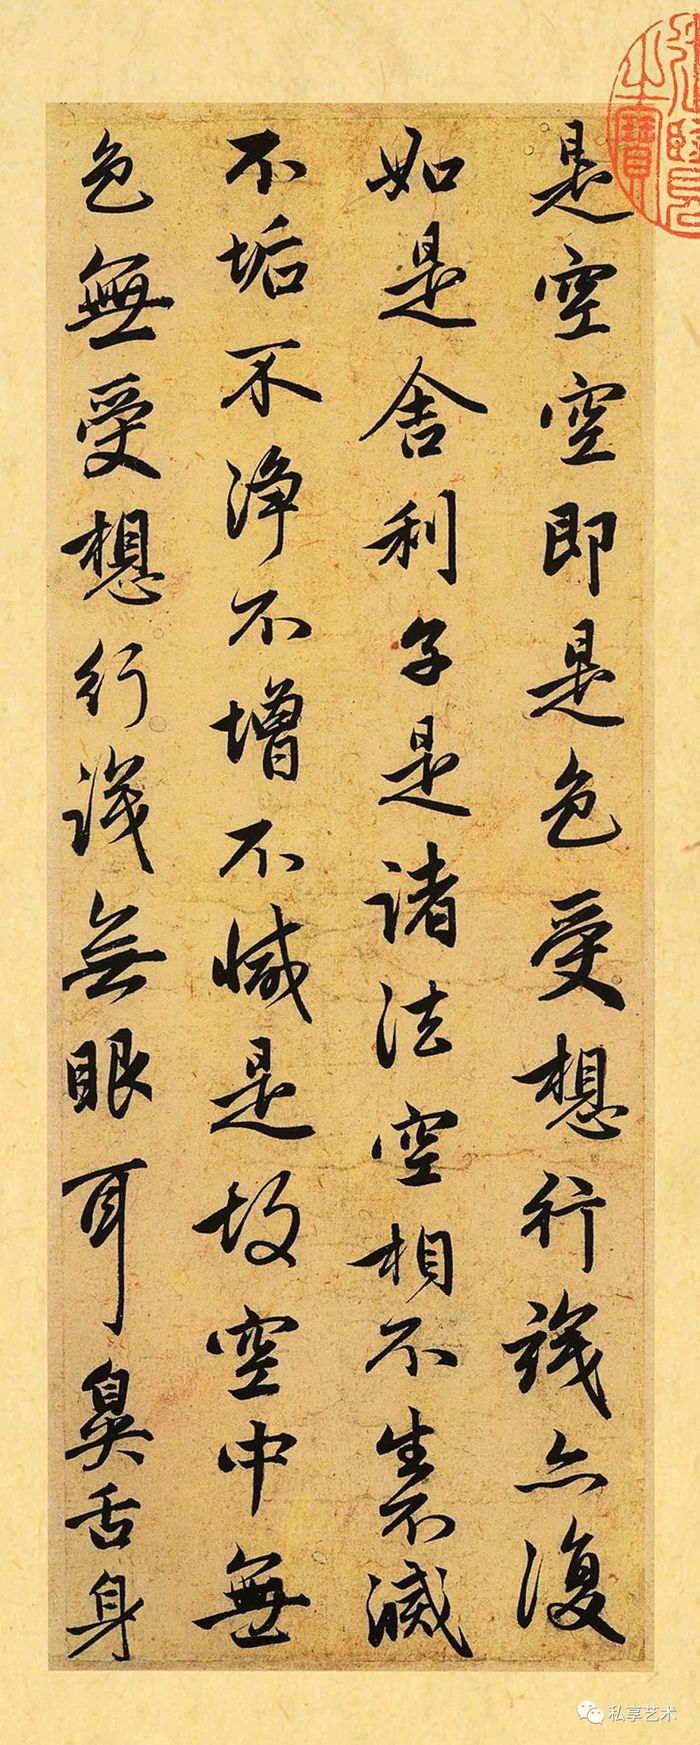 是空空即是色受想行識亦復
如是舍利子是諸法空相不生不滅
不垢不淨不增不減是故空中無
色無受想行識無眼耳鼻舌身
私享艺术